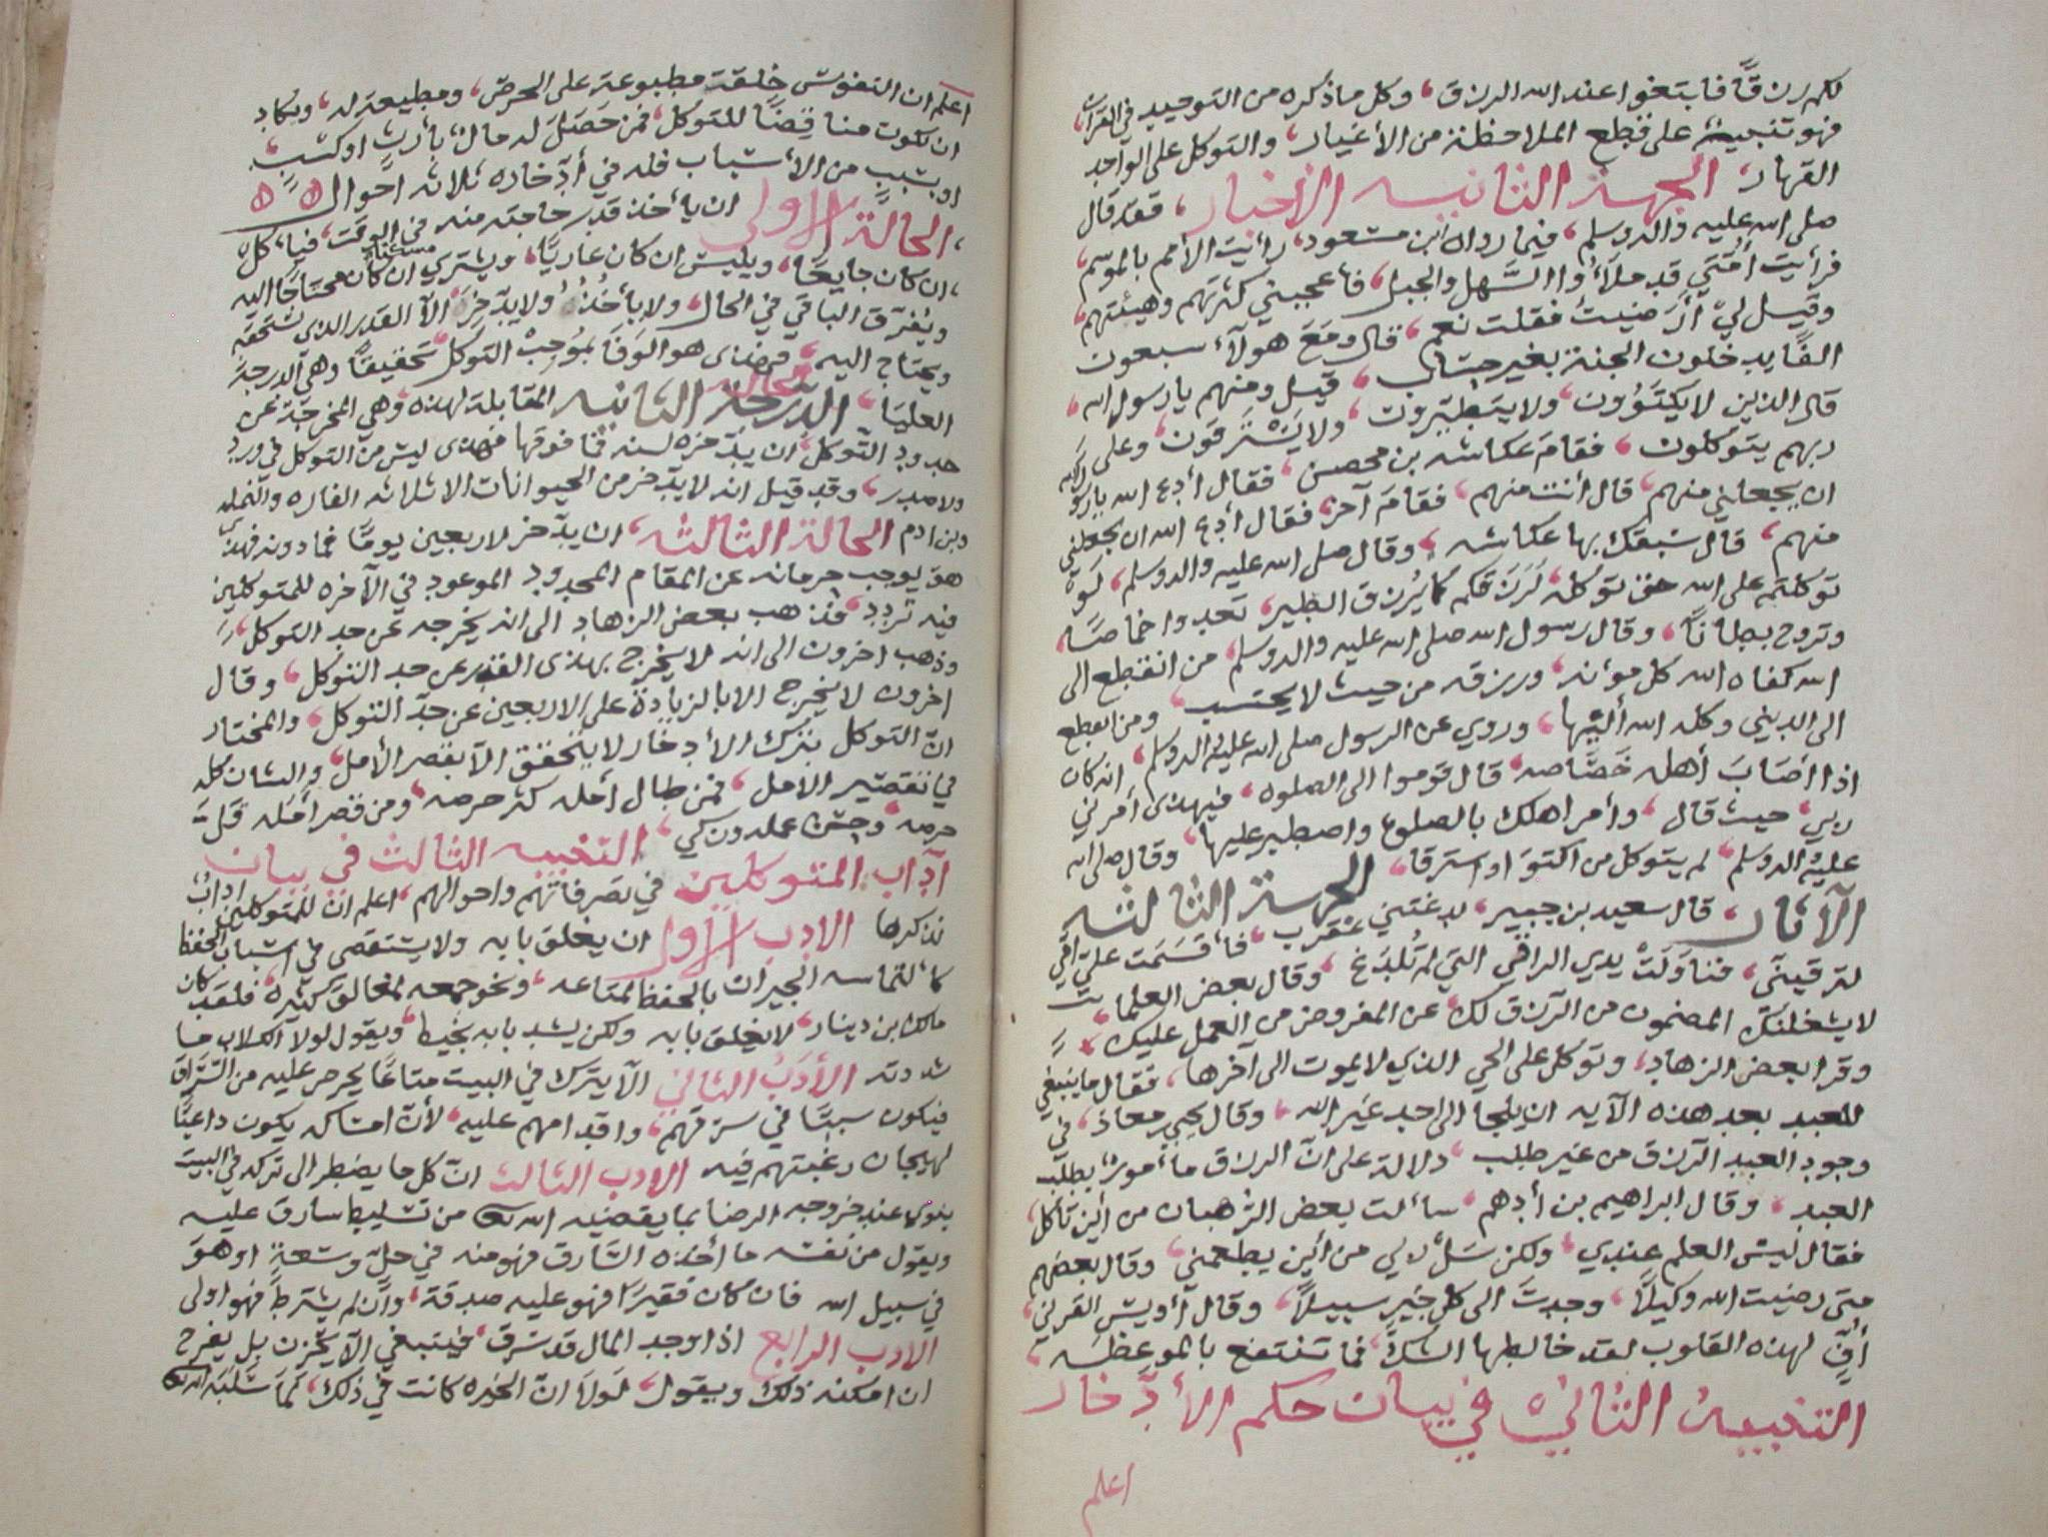 لكم رزقًا فابتغوا عند الله الرزق، وكل ما ذكره من التوحيد في القرآن
فهو تنبيه على قطع الملاحظة من الأغيار، والتوكل على الواحد
القهار، الجهة الثانيه الأخبار، فقد قال
صلى الله عليه واله وسلم، فيما رواه ابن مسعود، رأيت الأمم بالموسم،
فرأيت أمتي قد ملأوا السهل والجبل، فأعجبني كثرتهم وهيئتهم،
وقيل لي أرضيت فقلت نعم، قال ومع هولاء سبعون
الفًا يدخلون الجنة بغير حساب، قيل ومنهم يا رسول الله،
قال الذين لا يكتوون، ولا يتطيرون، ولا يسترقون، وعلى
ربهم يتوكلون، فقام عكاشه بن محصن، فقال أدع الله يا رسول الله
ان يجعلني منهم، قال أنت منهم، فقام آخر، فقال أدع الله ان يجعلني
منهم، قال سبقك بها عكاشه، وقال صلى الله عليه واله وسلم، لو
توكلتم على الله حق توكله، لرزقكم كما يُرزق الطير، تغدوا خماصًا،
وتروح بطانًا، وقال رسول الله صلى الله عليه واله وسلم، من انقطع الى
الله كفاه الله كل مؤنه، ورزقه من حيث لا يحتسب، ومن انقطع
الى الدنيى وكله الله أليها، وروي عن الرسول صلى الله عليه واله وسلم، انه كان
اذا أصاب أهله خصاصه، قال قوموا الى الصلوه، فبهذى أمرني
ربي، حيث قال، وأمر اهلك بالصلوة واصطبر عليها، وقال صلى الله
عليه واله وسلم، لم يتوكل من اكتوى او استرقا، الجهة الثالثه
الآثار، قال سعيد بن جبير، لدغتني عقرب، فأقسمت علي أمي
لترقيني، فناولت يدي الراقي التي لم تُلدغ، وقال بعض العلما،
لا يشغلنك المضمون من الرزق لك، عن المفروض من العمل عليك،
وقرا بعض الزهاد، وتوكل على الحي الذي لا يموت الى آخرها، فقال ما ينبغي
للعبد بعد هذه الآيه ان يلجا الى احد غير الله، وقال يحيى بن معاذ، في
وجود العبد الرزق من غير طلب، دلالة على انّ الرزق مأمور بطلب
العبد، وقال ابراهيم بن أدهم، سألت بعض الرهبان من أين تأكل،
فقال ليس العلم عندي، ولكن سل لربي من أين يطعمني، وقال بعضهم
متى رضيت الله وكيلًا، وجدت الى كل خير سبيلًا، وقال أويس القرني،
أفٍّ لهذه القلوب لقد خالطها الشك، فما تنتفع بالموعظه،
التنبيه الثاني في بيان حكم الأدّخار
اعلم
اعلم ان النفوس خلقت مطبوعة على الحرص، ومطيعة له، ويكاد
ان يكون مناقضًا للتوكل، فمن حصل له مال، بأرث اوكسب،
او بسبب من الأسباب فله في أدّخاره ثلاثه احوال
، الحالة الاولى ان يأخذ قدر حاجته منه في الوقت، فيأكل
، ان كان جايعًا، ويلبس ان كان عاريًا، ويشتري مسكنًا ان كان محتاجًا اليه
ويُفرّق الباقي في الحال، ولا يأخذه ولا يدّخره الاّ القدر الذي يستحقه
ويحتاج اليه، فهذى هو الوفا بموجب التوكل تحقيقًا وهي الدرجة
العليا، الحالة الدرجة الثانيه المقابلة لهذه، وهي المخرجة عن
حدود التوكل، ان يدّخره لسنه فما فوقها فهذى ليس من التوكل في ورد
ولا صدر، وقد قيل انه لا يدّخر من الحيوانات الا ثلاثه الفاره والنمله
وبن ادم الحالة الثالثه، ان يدّخر لاربعين يومًا فما دونه فهذى
هو يوجب حرمانه عن المقام المحدود الموعود في الآخره للمتوكلين
فيه تردد، فذهب بعض الزهاد الى انه يخرجه عن حد التوكل،
وذهب اخرون الى انه لا يخرج بهذى القدر عن حد التوكل، وقال
اخرون لا يخرج الا بالزيادة على الاربعين عن حدّ التوكل، والمختار
انّ التوكل بترك الأدخار لا يتحقق الاّ بقصر الأمل، والشان كله
في تقصير الامل، فمن طال أمله كثر حرصه، ومن قصر أمله قلّ
حرصه، وحسن عمله دون كي، التنبيه الثالث في بيان
آداب المتوكلين في تصرفاتهم واحوالهم، اعلم ان للمتوكلين اداب
نذكرها الادب الأول ان يغلق بابه ولا يستقصي في اسباب الحفظ
كألتماسه الجيران بالحفظ لمتاعه، ونحو جمعه لمغالق كثيره، فلقد كان
مالك ابن دينار، لا يغلق بابه ولكن يشد بابه بخيط، ويقول لولا الكلاب ما
شددته الأدب الثاني الاّ يترك في البيت متاعًا يحرص عليه من السّراق
فيكون سببًا في سرقتهم، واقدامهم عليه، لأن امساكه يكون داعيًا
لهيجان رغبتهم فيه الادب الثالث انّ كل ما يضطر الى تركه في البيت
ينوي عند خروجه الرضا بما يقضيه الله تعالى من تسليط سارق عليه
ويقول من نفسه ما أخذه السّارق فهو منه في حلّ وسعةٍ او هو
في سبيل الله فان كان فقيرًا فهو عليه صدقة، وان لم يشترط فهو اولى
الادب الرابع اذا وجد المال قد سُرق، فينبغي الاّ يحزن بل يفرح
ان امكنه ذلك ويقول، لولا انّ الخيره كانت في ذلك، لما سلبه الله تعالى